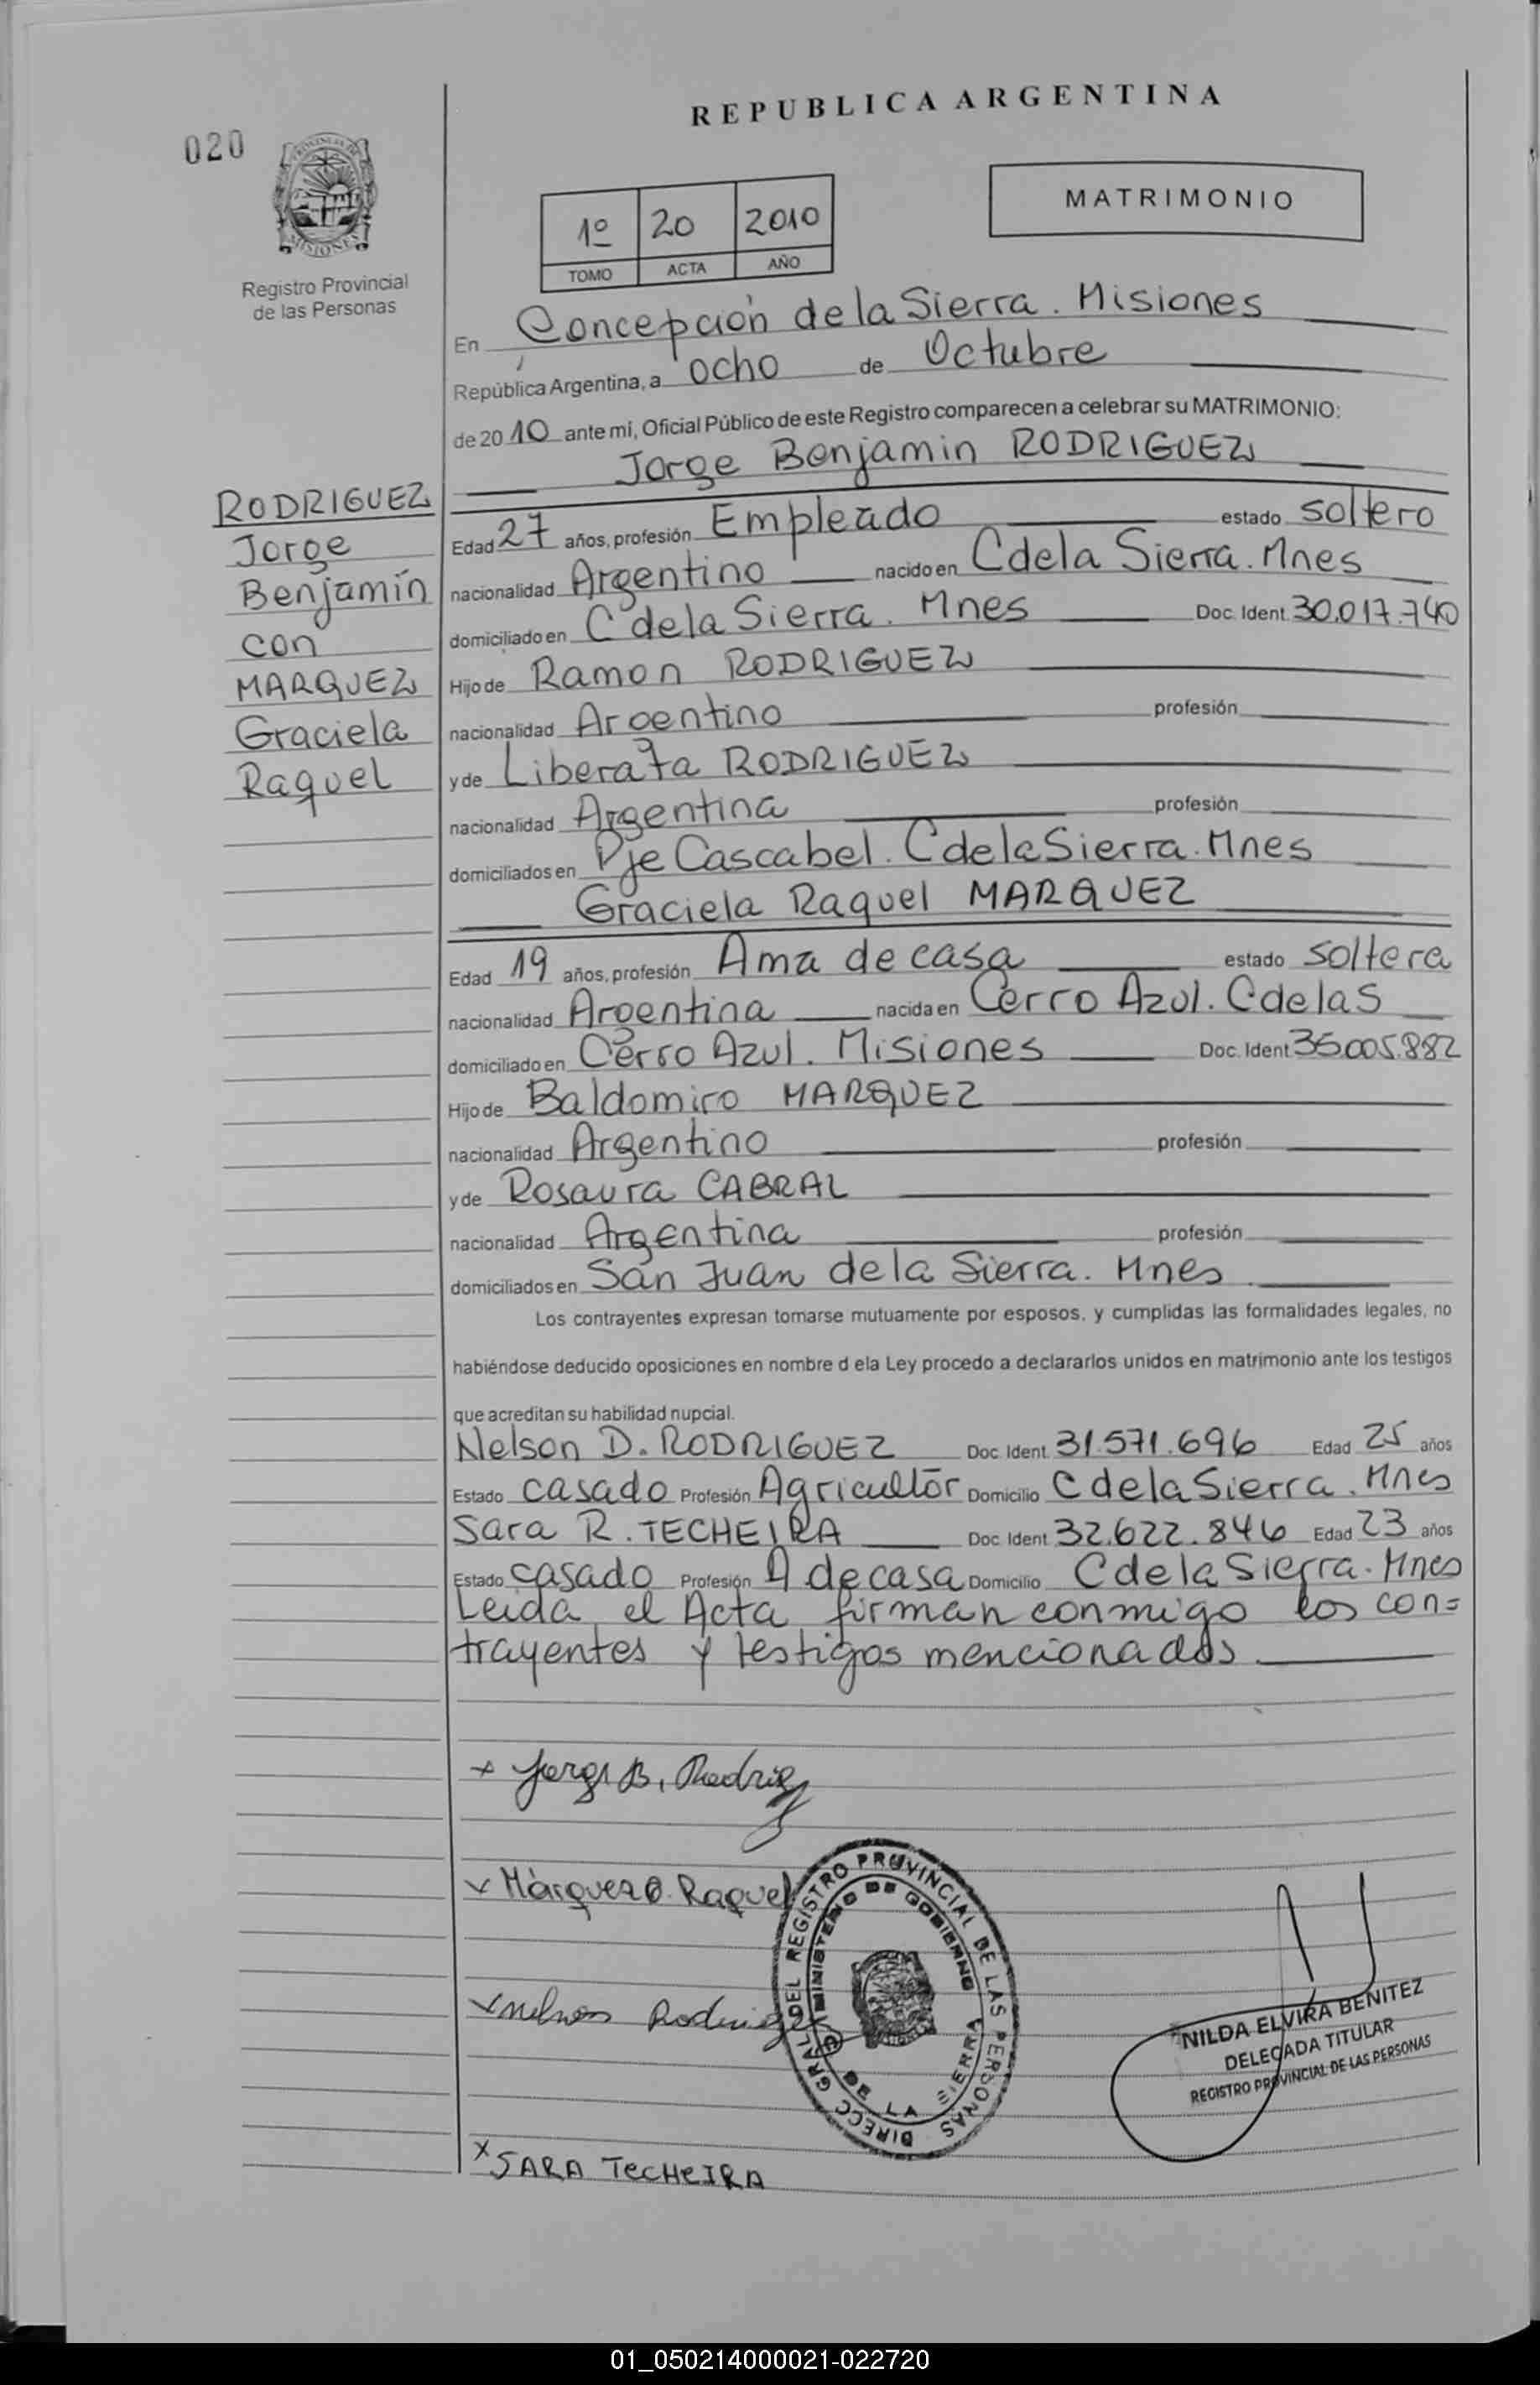 REPUBLICA ARGENTINA
020
PROVINCIA DE
MISIONES
Registro Provincial
de las Personas
1º 20 2010
TOMO ACTA AÑO
MATRIMONIO
En Concepción de la Sierra. Misiones
República Argentina, a ocho de Octubre
de 2010 ante mí, Oficial Público de este Registro comparecen a celebrar su MATRIMONIO:
Jorge Benjamin RODRIGUEZ
RODRIGUEZ
Jorge
Benjamín
con
MARQUEZ
Graciela
Raquel
Edad 27 años, profesión Empleado estado soltero
nacionalidad Argentino nacido en C de la Sierra. Mnes
domiciliado en C de la Sierra. Mnes Doc. Ident. 30.017.740
Hijo de Ramon RODRIGUEZ
nacionalidad Argentino profesión
y de Liberata RODRIGUEZ
nacionalidad Argentina profesión
domiciliados en Pje Cascabel. C de la Sierra. Mnes
Graciela Raquel MARQUEZ
Edad 19 años, profesión Ama de casa estado soltera
nacionalidad Argentina nacida en Cerro Azul. C de la S
domiciliado en Cerro Azul. Misiones Doc. Ident. 36.005.882
Hijo de Baldomiro MARQUEZ
nacionalidad Argentino profesión
y de Rosaura CABRAL
nacionalidad Argentina profesión
domiciliados en San Juan de la Sierra. Mnes
Los contrayentes expresan tomarse mutuamente por esposos, y cumplidas las formalidades legales, no
habiéndose deducido oposiciones en nombre d ela Ley procedo a declararlos unidos en matrimonio ante los testigos
que acreditan su habilidad nupcial.
Nelson D. RODRIGUEZ Doc. Ident. 31.571.696 Edad 25 años
Estado casado Profesión Agricultor Domicilio C de la Sierra. Mnes
Sara R. TECHEIRA Doc. Ident. 32.622.846 Edad 23 años
Estado casado Profesión A de casa Domicilio C de la Sierra. Mnes
Leida el Acta firman conmigo los con=
trayentes y testigos mencionados
x Jorge B. Rodrig
x Márquez G. Raquel
x nelson Rodriguez
x SARA TECHEIRA
DIRECC GRAL DEL REGISTRO PROVINCIAL DE LAS PERSONAS
MINISTERIO DE GOBIERNO
C DE LA SIERRA
NILDA ELVIRA BENITEZ
DELEGADA TITULAR
REGISTRO PROVINCIAL DE LAS PERSONAS
01_050214000021-022720